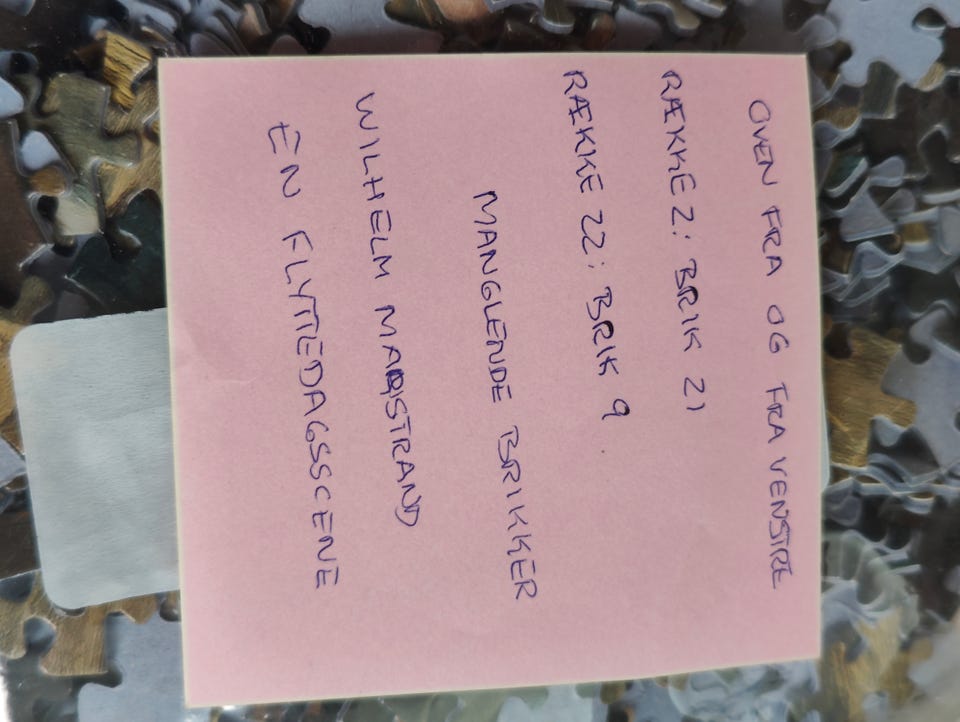 OVEN FRA OG FRA VENSTRE
RÆKKE 2: BRIK 21
RÆKKE 22: BRIK 9
MANGLENDE BRIKKER
WILHELM MARSTRAND
EN FLYTTEDAGSSCENE